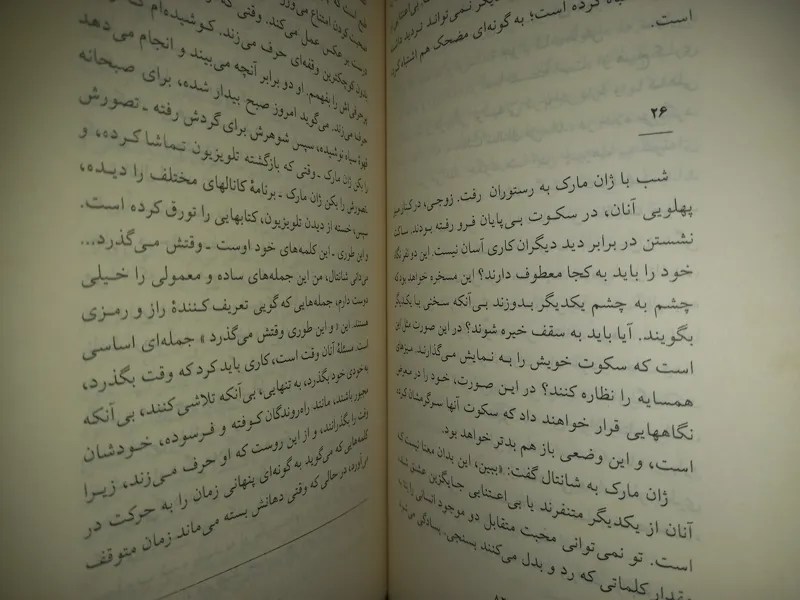 دیگر نمی‌تواند تردید داشته
کرده است؛ به گونه‌ای مضحک هم اشتباه کرده
است.
۲۶
شب با ژان مارک به رستوران رفت. زوجی، در کنار میز
پهلویی آنان، در سکوت بی‌پایان فرو رفته بودند. ساکت
نشستن در برابر دید دیگران کاری آسان نیست. این دو نفر نگاه
خود را باید به کجا معطوف دارند؟ این مسخره خواهد بود که
چشم به چشم یکدیگر بدوزند بی‌آنکه سخنی با یکدیگر
بگویند. آیا باید به سقف خیره شوند؟ در این صورت مثل این
است که سکوت خویش را به نمایش می‌گذارند. میزهای
همسایه را نظاره کنند؟ در این صورت، خود را در معرض
نگاههایی قرار خواهند داد که سکوت آنها سرگرمشان کرده
است، و این وضعی باز هم بدتر خواهد بود.
ژان مارک به شانتال گفت: «ببین، این بدان معنا نیست که
آنان از یکدیگر متنفرند یا بی‌اعتنایی جایگزین عشق شده
است. تو نمی‌توانی محبت متقابل دو موجود انسانی را تنها به
مقدار کلماتی که رد و بدل می‌کنند بسنجی. بسادگی می‌شود
صحبت کردن امتناع می‌ورزد
درست بر عکس عمل می‌کند. وقتی که
بدون کوچکترین وقفه‌ای حرف می‌زند. کوشیده‌ام که
پرحرفی‌اش را بفهمم. او دو برابر آنچه می‌بیند و انجام می‌دهد
حرف می‌زند. می‌گوید امروز صبح بیدار شده، برای صبحانه
قهوهٔ سیاه نوشیده، سپس شوهرش برای گردش رفته ـ تصورش
را بکن ژان مارک ـ وقتی که بازگشته تلویزیون تماشا کرده، و
ـ تصورش را بکن ژان مارک ـ برنامهٔ کانالهای مختلف را دیده،
سپس، خسته از دیدن تلویزیون، کتابهایی را تورق کرده است.
و این طوری ـ این کلمه‌های خود اوست ـ وقتش می‌گذرد...
می‌دانی شانتال، من این جمله‌های ساده و معمولی را خیلی
دوست دارم، جمله‌هایی که گویی تعریف کنندهٔ راز و رمزی
هستند. این «و این طوری وقتش می‌گذرد» جمله‌ای اساسی
است. مسئلهٔ آنان وقت است، کاری باید کرد که وقت بگذرد،
به خودی خود بگذرد، به تنهایی، بی‌آنکه تلاشی کنند، بی‌آنکه
مجبور باشند، مانند راه‌روندگان کوفته و فرسوده، خودشان
وقت را بگذرانند، و از این روست که او حرف می‌زند، زیرا
کلمه‌هایی که می‌گوید به گونه‌ای پنهانی زمان را به حرکت در
می‌آورد، در حالی که وقتی دهانش بسته می‌ماند زمان متوقف